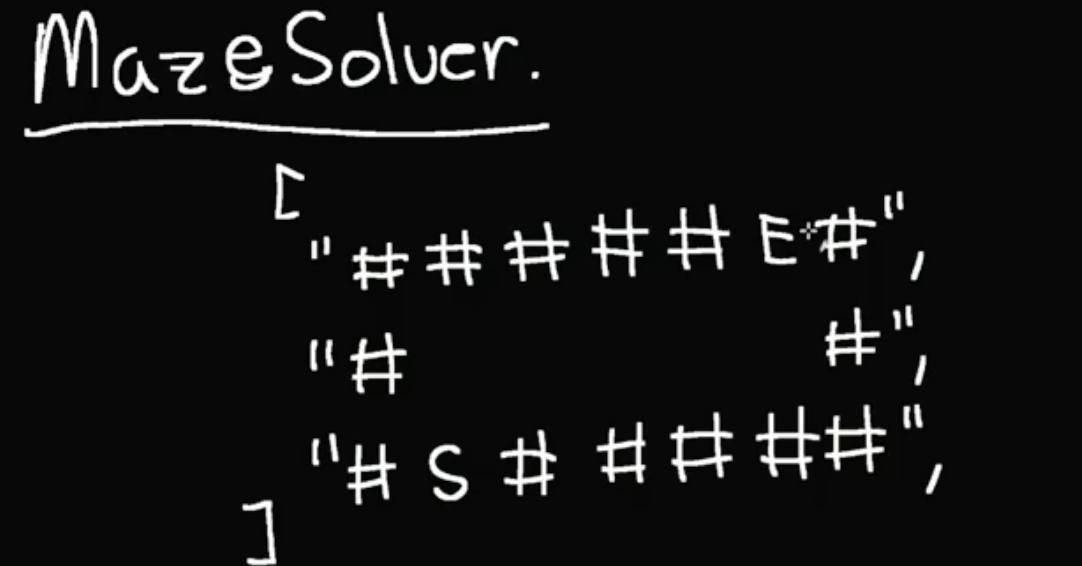 MazeSolver.
[
"#####E#",
"#     #",
"#S#####",
]